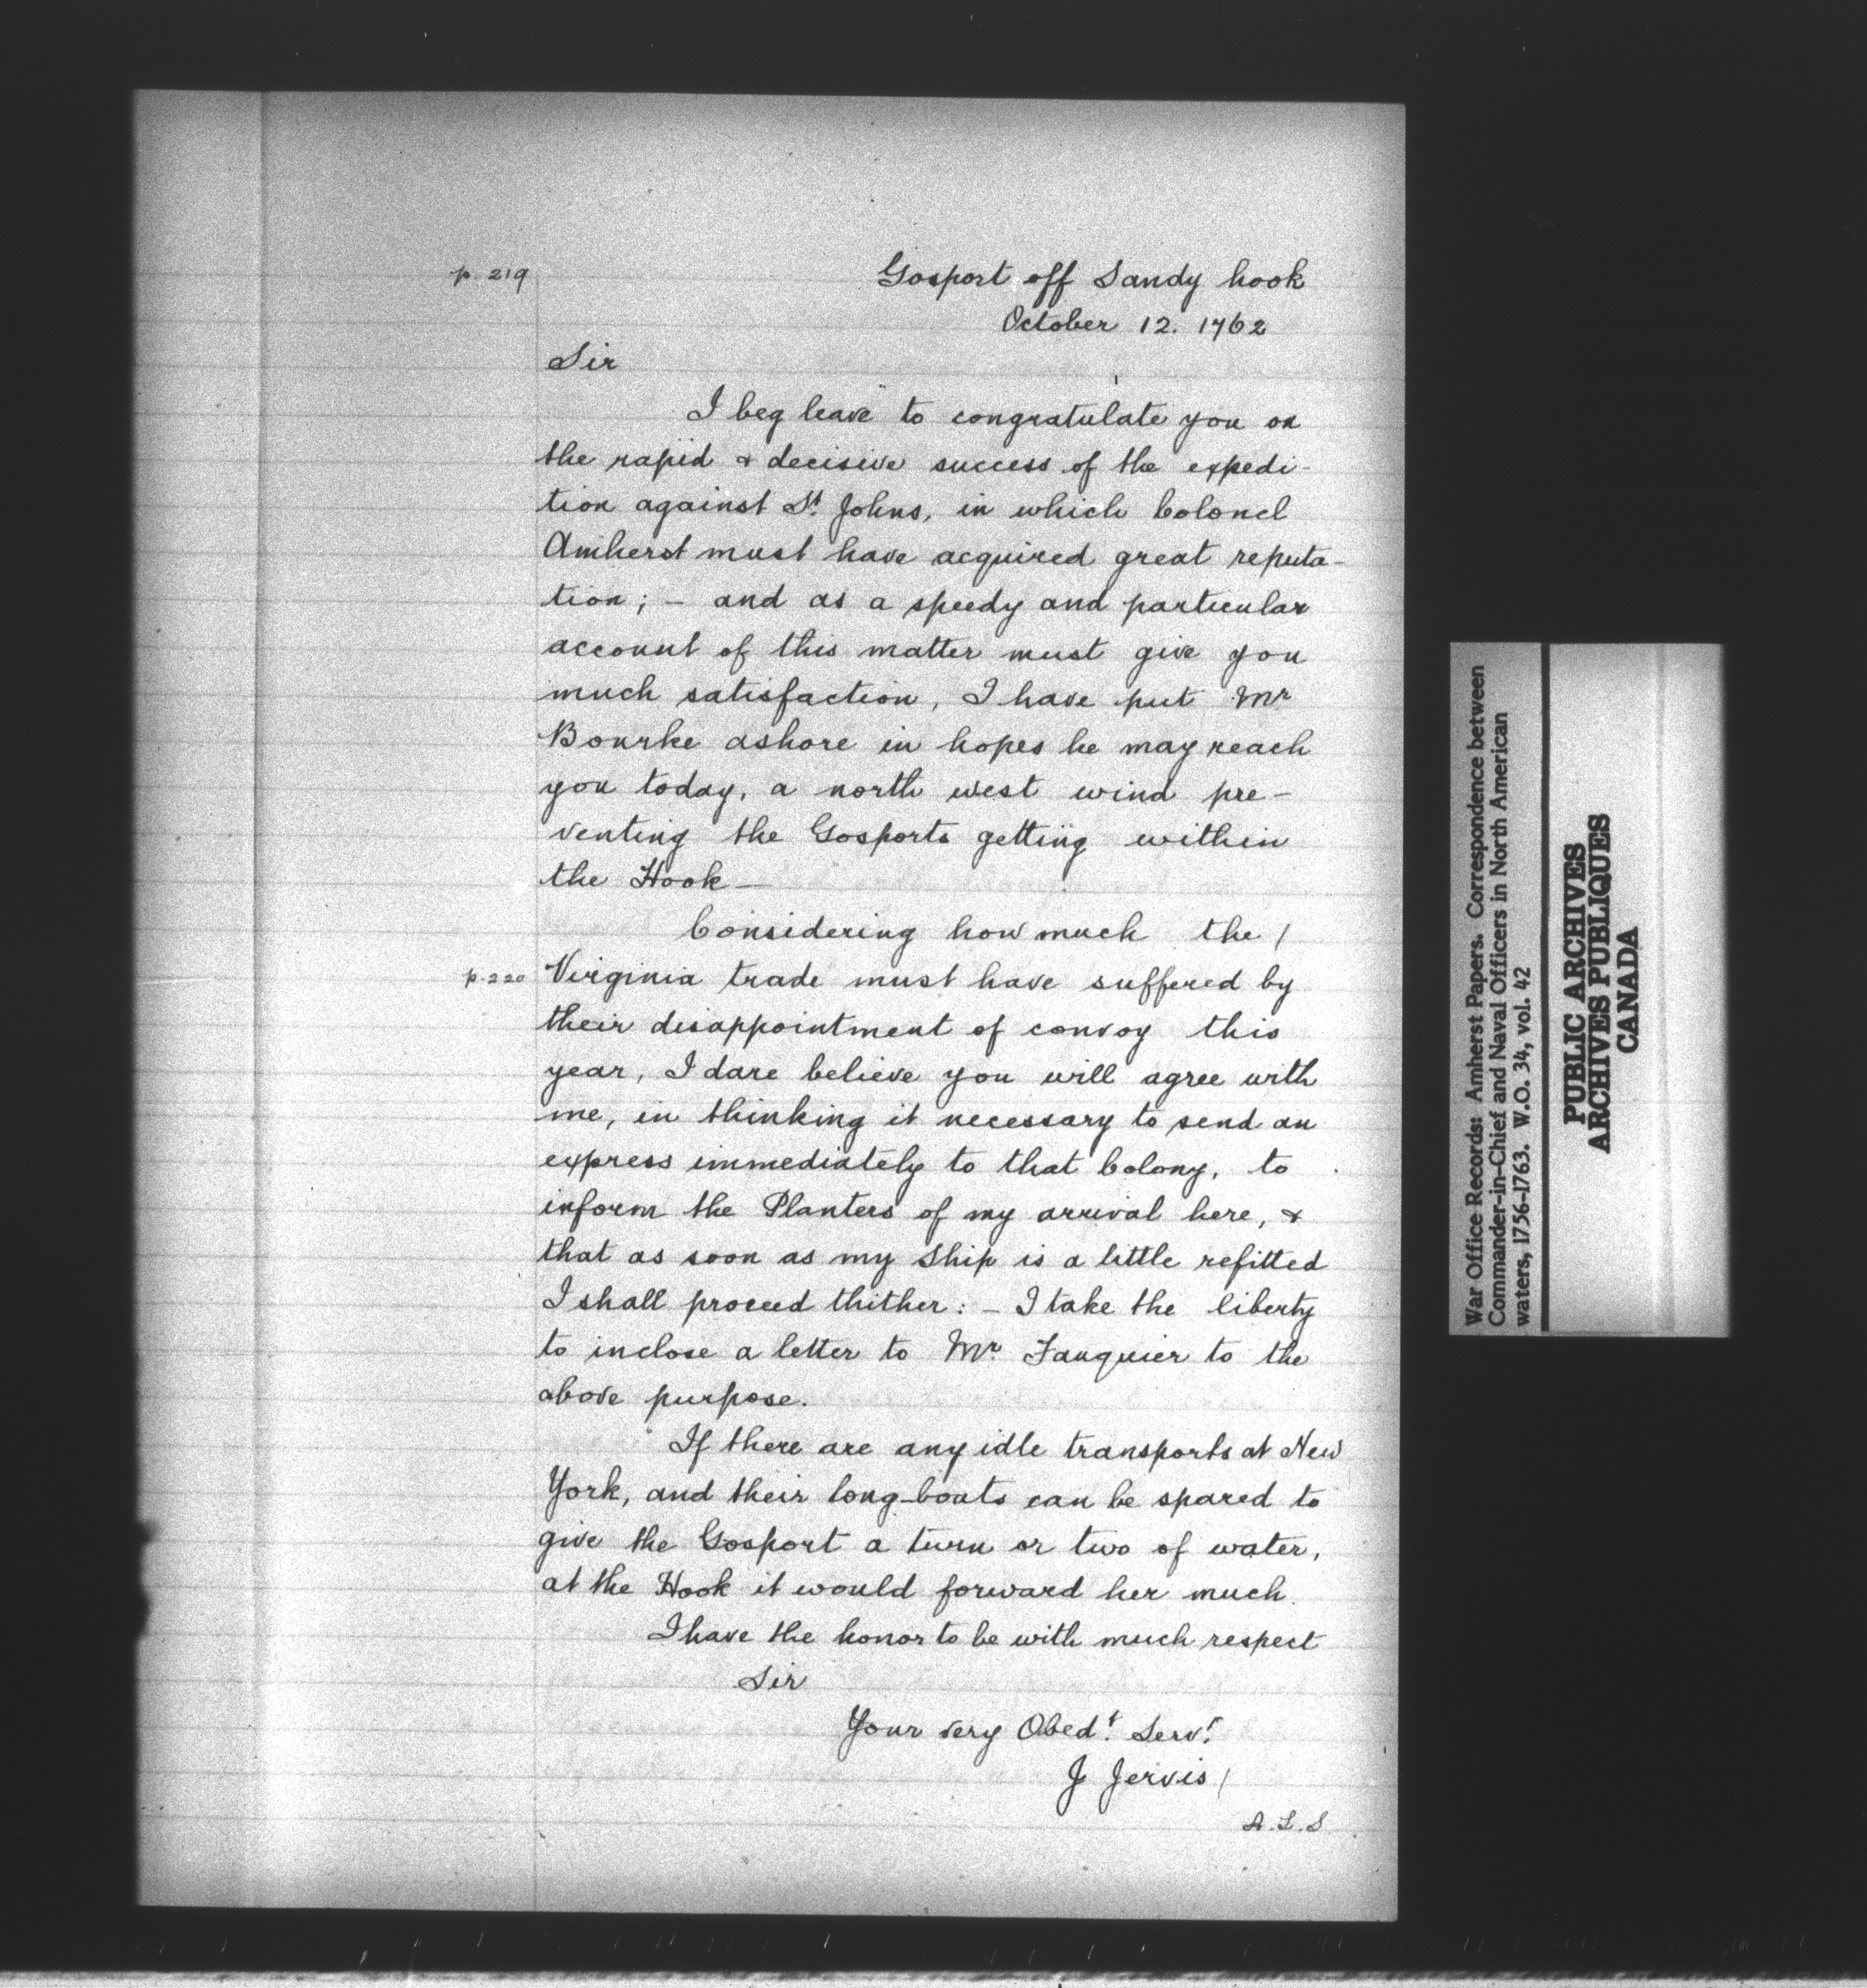 p. 219
Gosport off Sandy hook
October 12. 1762
Sir
I beg leave to congratulate you on
the rapid & decisive success of the expedi-
tion against St. Johns, in which Colonel
Amherst must have acquired great reputa-
tion; - and as a speedy and particular
account of this matter must give you
much satisfaction, I have put Mr
Bourke ashore in hopes he may reach
you today, a north west wind pre-
venting the Gosports getting within
the Hook—
Considering how much the /
p. 220 Virginia trade must have suffered by
their disappointment of convoy this
year, I dare believe you will agree with
me, in thinking it necessary to send an
express immediately to that Colony, to
inform the Planters of my arrival here, &
that as soon as my Ship is a little refitted
I shall proceed thither: - I take the liberty
to inclose a letter to Mr. Fauquier to the
above purpose.
If there are any idle transports at New
York, and their long-boats can be spared to
give the Gosport a turn or two of water,
at the Hook it would forward her much.
I have the honor to be with much respect
Sir
Your very Obedt. Servt.
J Jervis /
A.L.S
War Office Records: Amherst Papers. Correspondence between
Commander-in-Chief and Naval Officers in North American
waters, 1756-1763. W.O. 34, vol. 42
PUBLIC ARCHIVES
ARCHIVES PUBLIQUES
CANADA